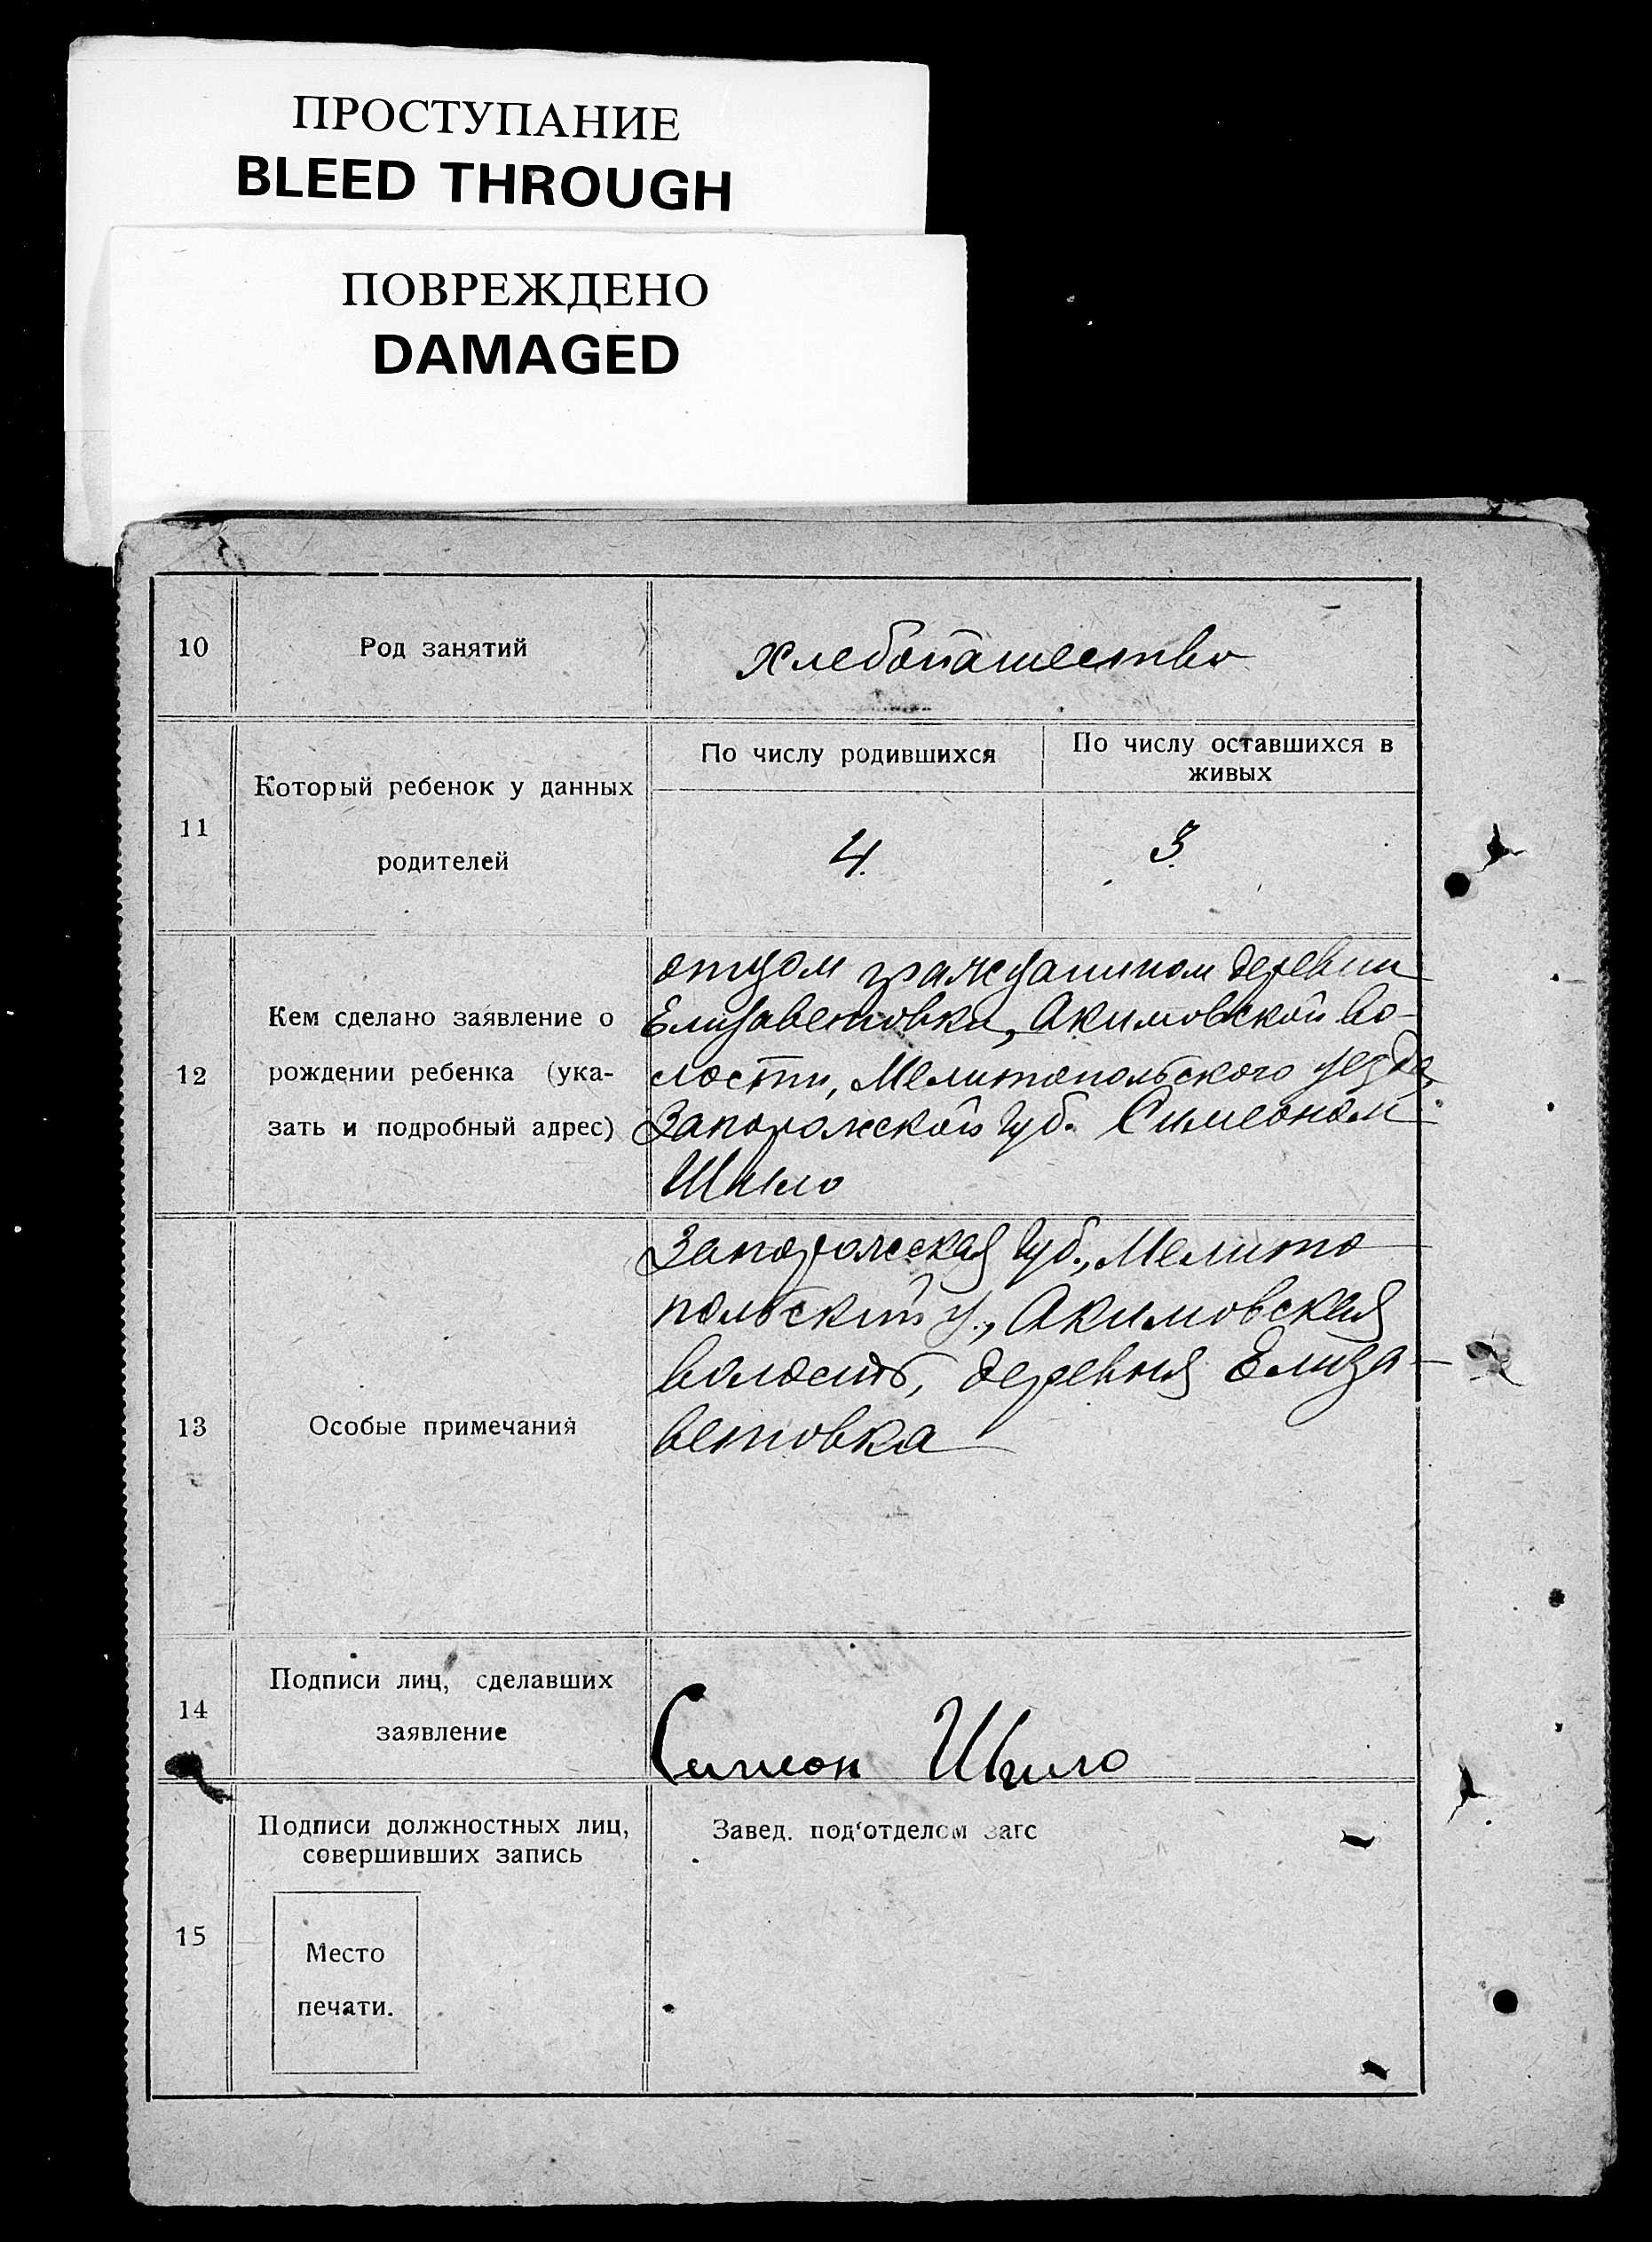 ПРОСТУПАНИЕ
BLEED THROUGH
ПОВРЕЖДЕНО
DAMAGED
10
Род занятий
хлебопашество
11
Который ребенок у данных
родителей
По числу родившихся
По числу оставшихся в
живых
4.
3.
12
Кем сделано заявление о
рождении ребенка (ука-
зать и подробный адрес)
отцом гражданином деревни
Елизаветовки, Акимовской во-
лости, Мелитопольского уезда,
Запорожской губ. Симеоном
Шило
13
Особые примечания
Запорожская губ., Мелито
польский у., Акимовская
волость, деревня Елиза-
ветовка
14
Подписи лиц, сделавших
заявление
Симеон Шило
15
Подписи должностных лиц,
совершивших запись
Место
печати.
Завед. под'отделом загс